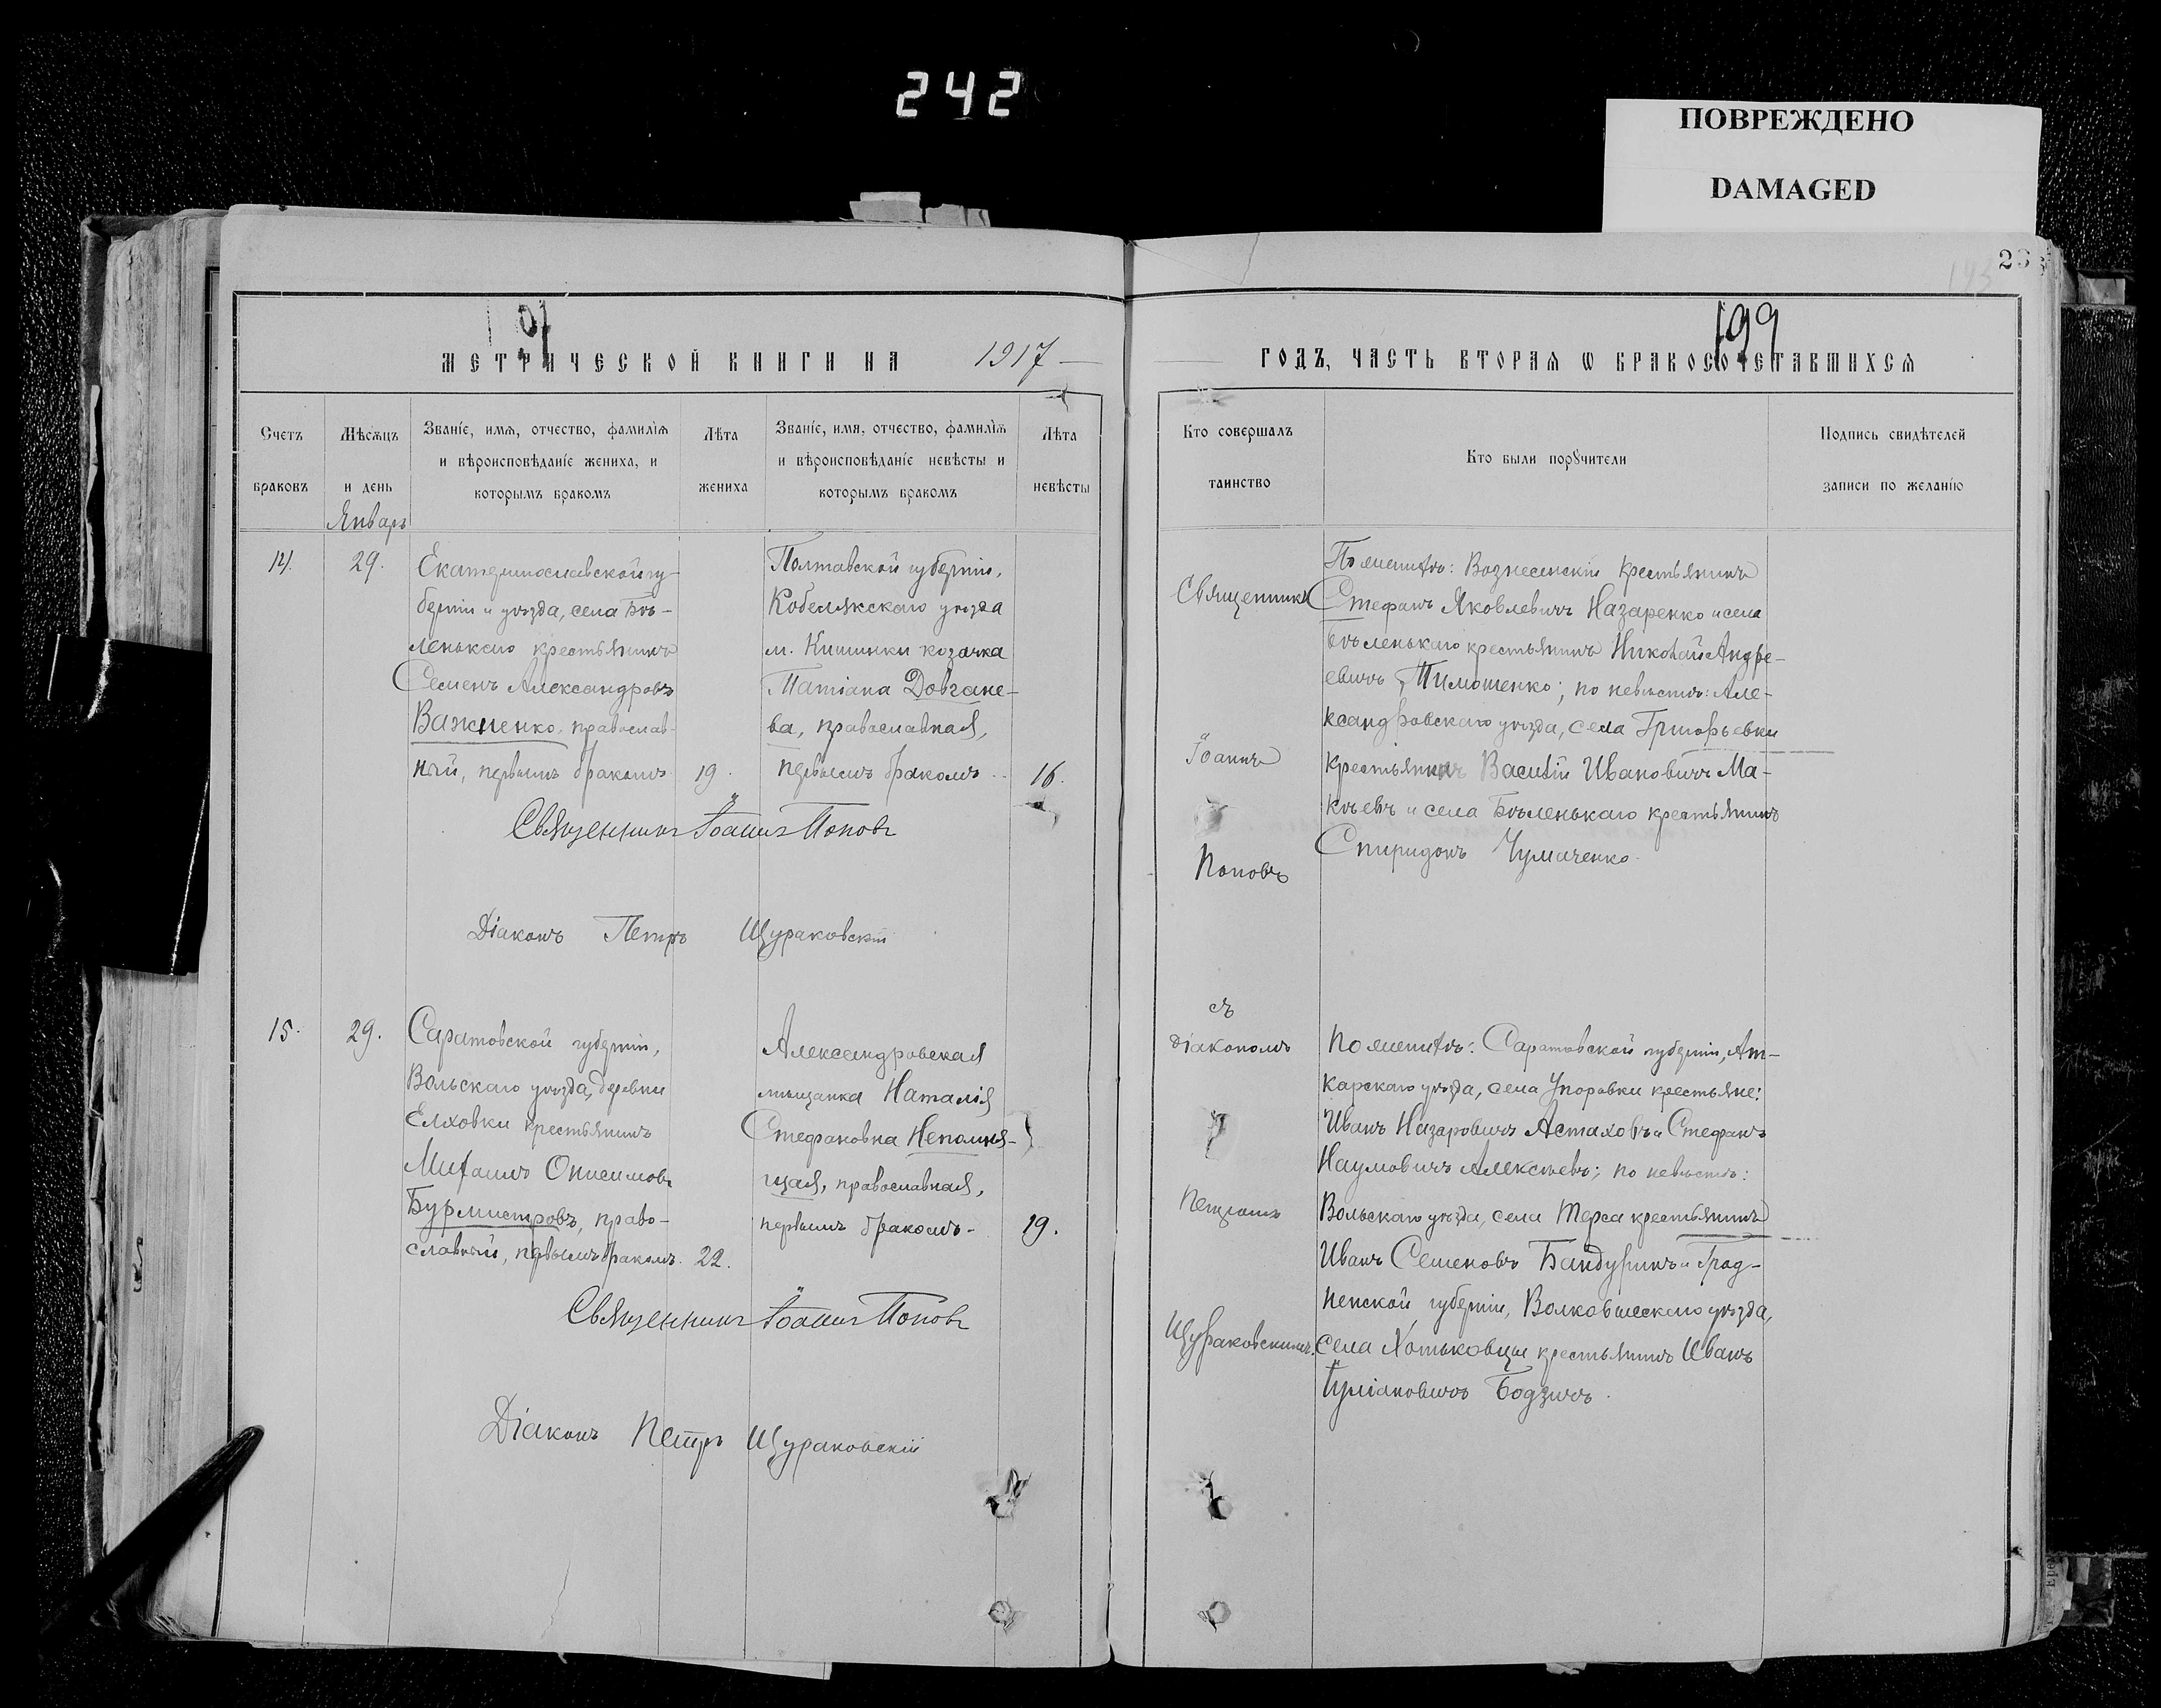 242
ПОВРЕЖДЕНО
DAMAGED
199
МЕТРИЧЕСКОЙ КНИГИ НА 1917
ГОДЪ, ЧАСТЬ ВТОРАЯ Ѡ БРАКОСОЧЕТАВШИХСЯ
Счетъ браковъ
Мѣсяцъ и день
Званіе, имя, отчество, фамилія и вѣроисповѣданіе жениха, и которымъ бракомъ
Лѣта жениха
Званіе, имя, отчество, фамилія и вѣроисповѣданіе невѣсты и которымъ бракомъ
Лѣта невѣсты
Кто совершалъ таинство
Кто были поручители
Подпись свидѣтелей записи по желанію
Январь
14.
29.
Екатеринославской гу-
берніи и уѣзда, села Бѣ-
ленькаго крестьянинъ
Семенъ Александровъ
Важненко, православ-
ный, первымъ бракомъ
19.
Полтавской губерніи,
Кобелякскаго уѣзда
м. Кишинки козачка
Татіана Довгане-
ва, православная,
первымъ бракомъ
16.
Священникъ Іоаннъ Поповъ
Діаконъ Петръ Щураковскій
Священникъ
Іоаннъ
Поповъ
По женихѣ: Вознесенскій крестьянинъ
Стефанъ Яковлевичъ Назаренко и села
Бѣленькаго крестьянинъ Николай Андре-
евичъ Тимошенко; по невѣстѣ: Але-
ксандровскаго уѣзда, села Григорьевки
крестьянинъ Василій Ивановичъ Ма-
кѣевъ и села Бѣленькаго крестьянинъ
Спиридонъ Чумаченко.
15.
29.
Саратовской губерніи,
Вольскаго уѣзда, деревни
Елховки крестьянинъ
Михаилъ Онисимовъ
Бурмистровъ, право-
славный, первымъ бракомъ.
22.
Александровская
мѣщанка Наталія
Стефановна Непомня-
щая, православная,
первымъ бракомъ-
19.
Священникъ Іоаннъ Поповъ
Діаконъ Петръ Щураковскій
съ
діакономъ
Петромъ
Щураковскимъ.
По женихѣ: Саратовской губерніи, Ат-
карскаго уѣзда, села Упоровки крестьяне:
Иванъ Назаровичъ Астаховъ и Стефанъ
Наумовичъ Алексѣевъ; по невѣстѣ:
Вольскаго уѣзда, села Терса крестьянинъ
Иванъ Семеновъ Бандуринъ и Грод-
ненской губерніи, Волковышскаго уѣзда,
села Хатьковцы крестьянинъ Иванъ
Бодзичъ.